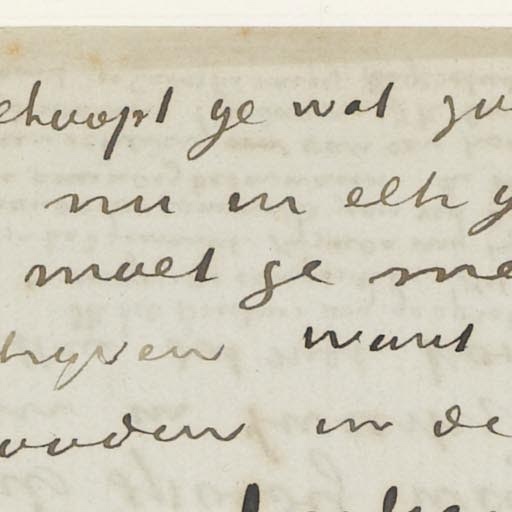 ehoopt ge wat zu
nu en elk g
moet ge me
hrijven want
ooden in de